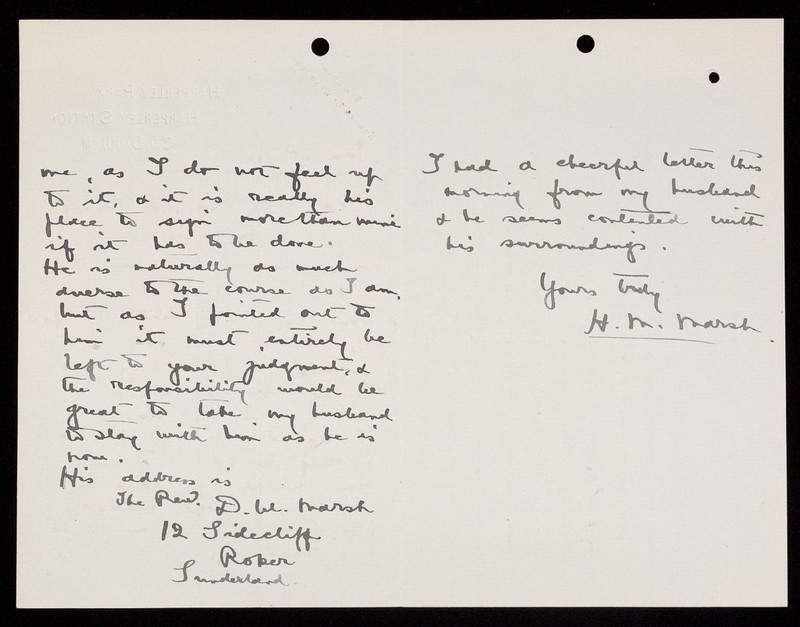 me, as I do not feel up
to it, & it is really his
place to sign more than mine
if it has to be done.
He is naturally as much
averse to the course as I am,
but as I pointed out to
him it must entirely be
left to your judgment, &
the responsibility would be
great to take my husband
to stay with him as he is
now.
His address is
The Revd. D. W. Marsh
12 Sidecliff
Roker
Sunderland.
I had a cheerful letter this
morning from my husband
& he seems contented with
his surroundings.
Yours truly
H. M. Marsh.